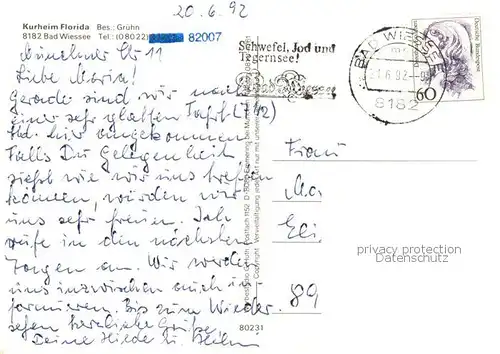 20.6.92
Kurheim Florida Bes.: Gruhn
8182 Bad Wiessee Tel.: (08022) 82007
Münchner Str 11
Liebe Maria!
Gerade sind wir nach
einer sehr glatten Fahrt (7 1/2
Std. hier angekommen
Falls Du Gelegenheit
siehst wie wir uns treffen
können, würden wir
uns sehr freuen. Ich
rufe in den nächsten
Tagen an. Wir werden
uns inzwischen auch in
formieren. Bis zum Wieder
sehen herzliche Grüße
Deine Hilde u.
Schwefel, Jod und
Tegernsee!
BAD WIESSEE
21.6.92
8182
Deutsche Bundespost
60
Frau
Ma
Eli
89
privacy protection
Datenschutz
80231